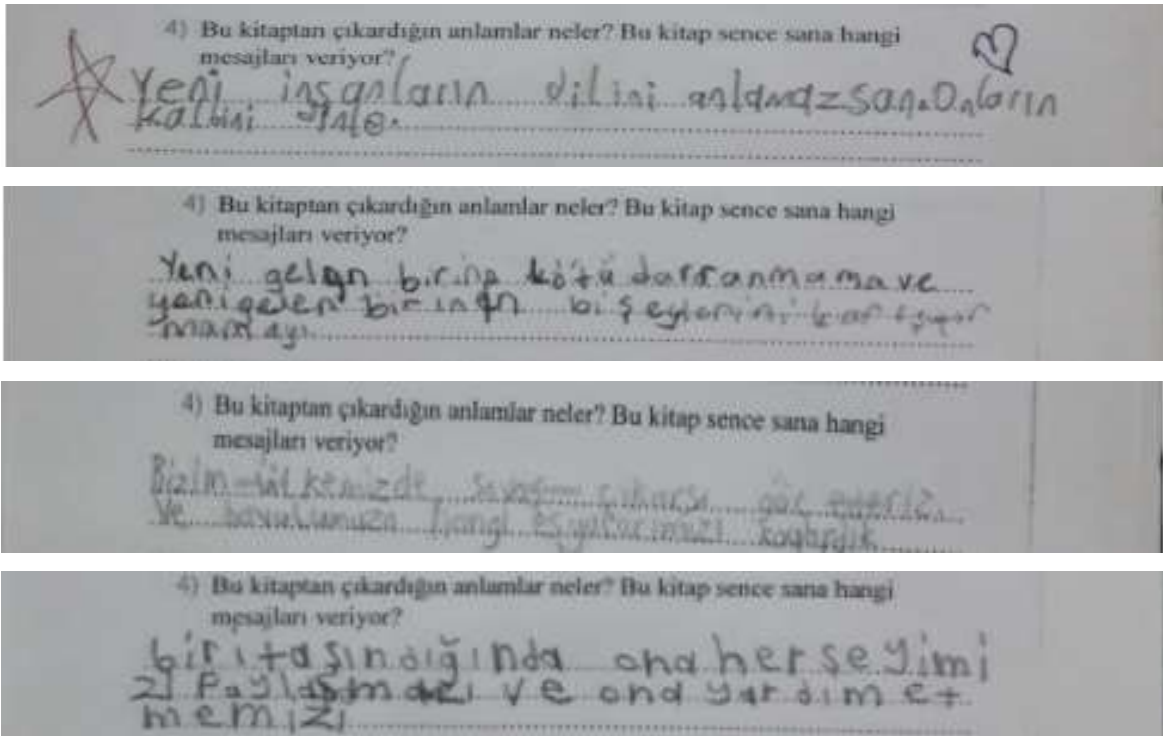 4) Bu kitaptan çıkardığın anlamlar neler? Bu kitap sence sana hangi
mesajları veriyor?
Yeni insanların dilini anlamazsan. Onların
kalbini dinle.
4) Bu kitaptan çıkardığın anlamlar neler? Bu kitap sence sana hangi
mesajları veriyor?
Yeni gelen birine kötü davranmama ve
yeni gelen birinin bişeylerini
mamayı
4) Bu kitaptan çıkardığın anlamlar neler? Bu kitap sence sana hangi
mesajları veriyor?
Bizim ülkemizde savaş çıkarsa göç ederiz.
Ve bavulumuza hangi eşyalarımızı koyardık
4) Bu kitaptan çıkardığın anlamlar neler? Bu kitap sence sana hangi
mesajları veriyor?
biri taşındığında ona her şeyimi
zi Paylaşmazı ve ona yardım et
memizi